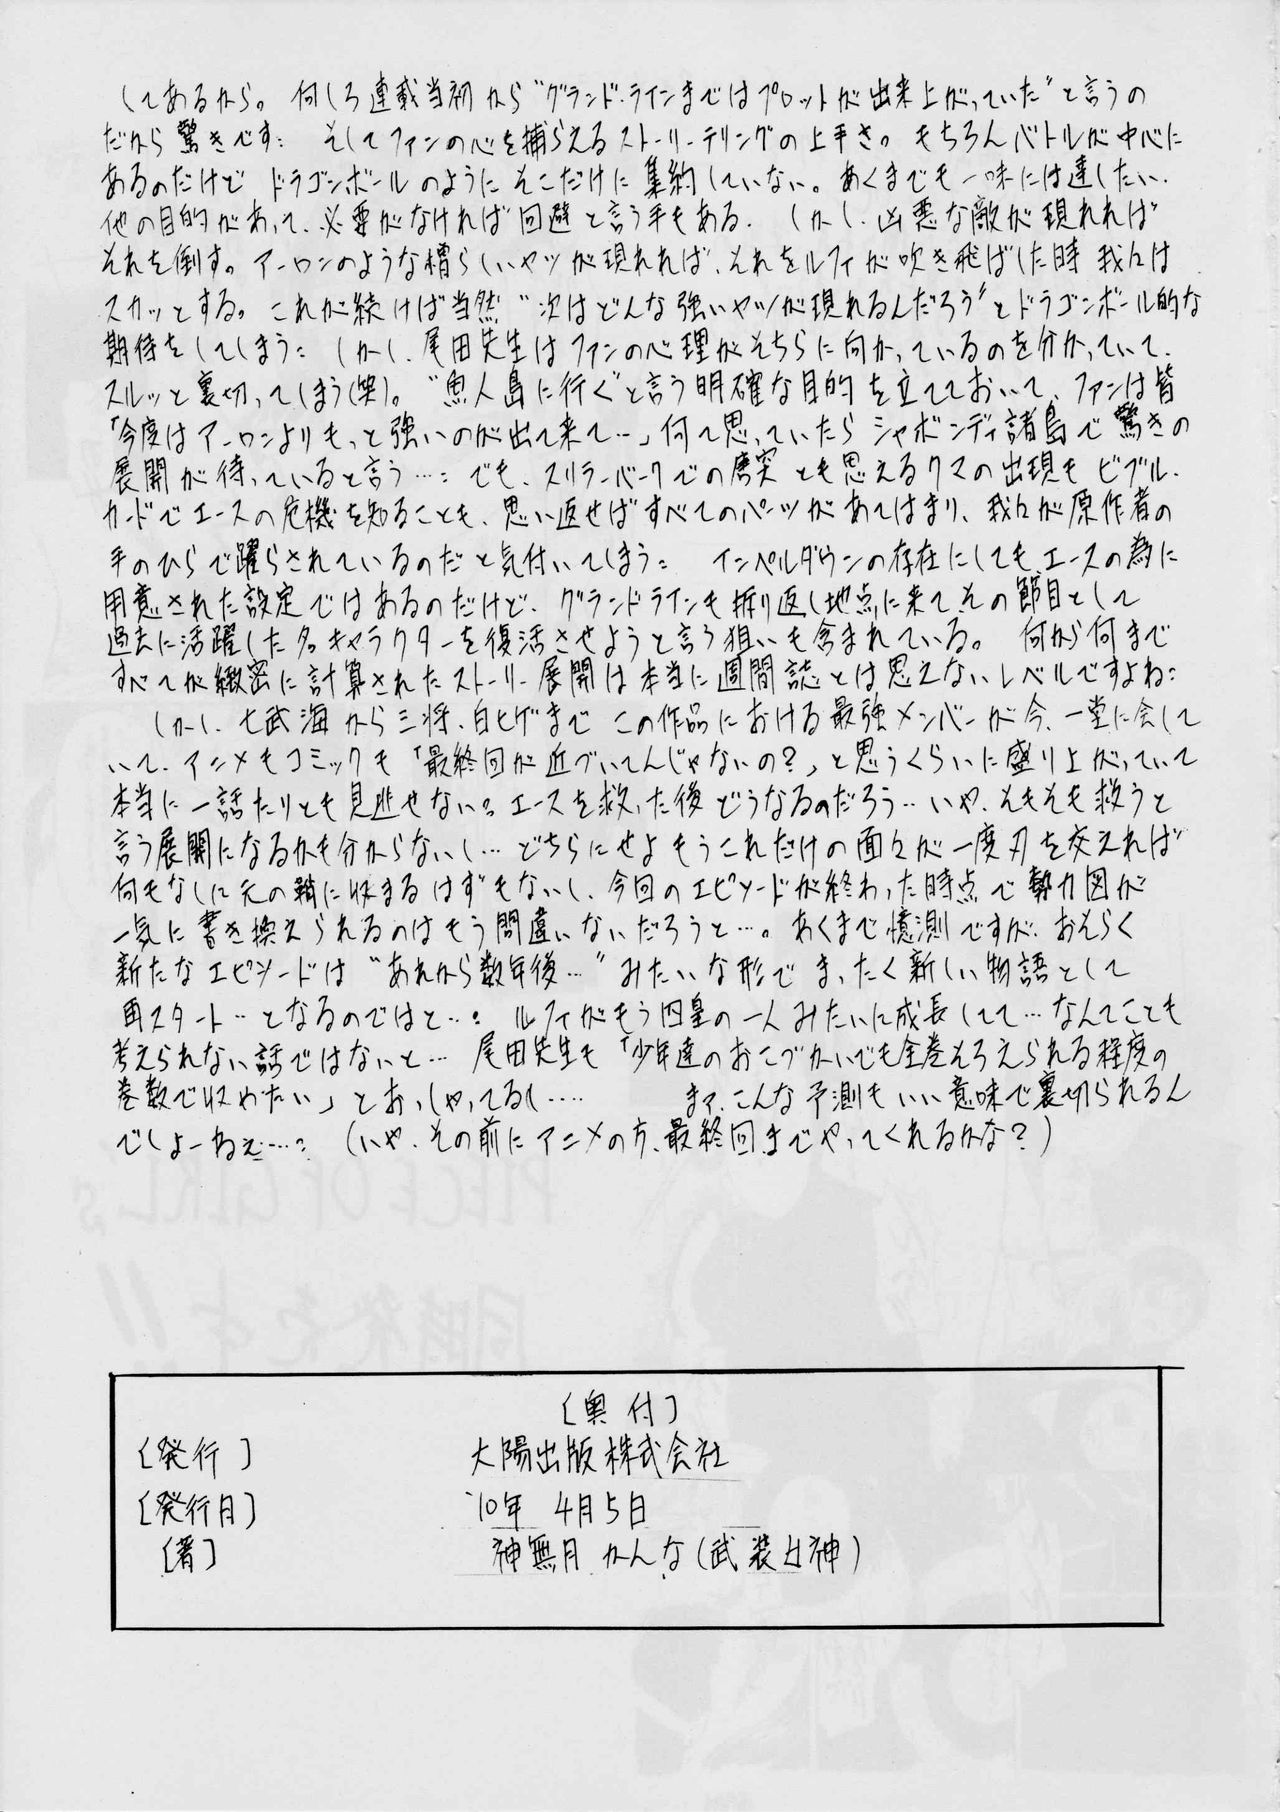 してあるから。何しろ連載当初から〝グランド・ラインまではプロットが出来上がっていた〟と言うの
だから驚きです: そしてファンの心を捕らえるストーリーテリングの上手さ。もちろんバトルが中心に
あるのだけど ドラゴンボールのようにそこだけに集約していない。あくまでも一味には達したい.
他の目的があって、必要がなければ回避と言う手もある. しかし、凶悪な敵が現れれば
それを倒す。アーロンのような憎らしいヤツが現れれば、それをルフィが吹き飛ばした時 我々は
スカッとする。これが続けば当然〝次はどんな強いヤツが現れるんだろう〟とドラゴンボール的な
期待をしてしまう: しかし、尾田先生はファンの心理がそちらに向かっているのを分かっていて、
スルッと裏切ってしまう(笑)。〝魚人島に行ぐ〟と言う明確な目的を立てておいて、ファンは皆
「今度はアーロンよりもっと強いのが出て来て…」何て思っていたらシャボンディ諸島で驚きの
展開が待っていると言う…: でも、スリラーバークでの唐突とも思えるクマの出現もビブル.
カードでエースの危機を知ることも、思い返せばすべてのパーツがあてはまり、我々が原作者の
手のひらで躍らされているのだと気付いてしまう: インペルダウンの存在にしても、エースの為に
用意された設定ではあるのだけど、グランドラインも折り返し地点に来て、その節目として
過去に活躍した名キャラクターを復活させようと言う狙いも含まれている。 何から何まで
すべてが緻密に計算されたストーリー展開は本当に週間誌とは思えないレベルですよね:
しかし、七武海から三将、白ヒゲまで この作品における最強メンバーが今、一堂に会して
いて、アニメもコミックも「最終回が近づいてんじゃないの?」と思うくらいに盛り上がっていて
本当に一話たりとも見逃せない: エースを救った後どうなるのだろう… いや、そもそも救うと
言う展開になるかも分からないし… どちらにせよもうこれだけの面々が一度刃を交えれば
何もなしに元の鞘に収まるはずもないし、今回のエピソードが終わった時点で勢力図が
一気に書き換えられるのはもう間違いないだろうと…。あくまで憶測ですが、おそらく
新たなエピソードは〝あれから数年後…〟みたいな形で まったく新しい物語として
再スタート…となるのではと…: ルフィがもう四皇の一人みたいに成長してて…なんてことも
考えられない話ではないと… 尾田先生も「少年達のおこづかいでも全巻そろえられる程度の
巻数で収めたい」とおっしゃってるし…. まァ、こんな予測もいい意味で裏切られるん
でしょーねェ…: (いや、その前にアニメの方、最終回までやってくれるかな?)
PIECE OF GIRL's
同時発売です!!
[奥付]
[発行] 大陽出版株式会社
[発行日] '10年 4月5日
[著] 神無月かんな(武装女神)